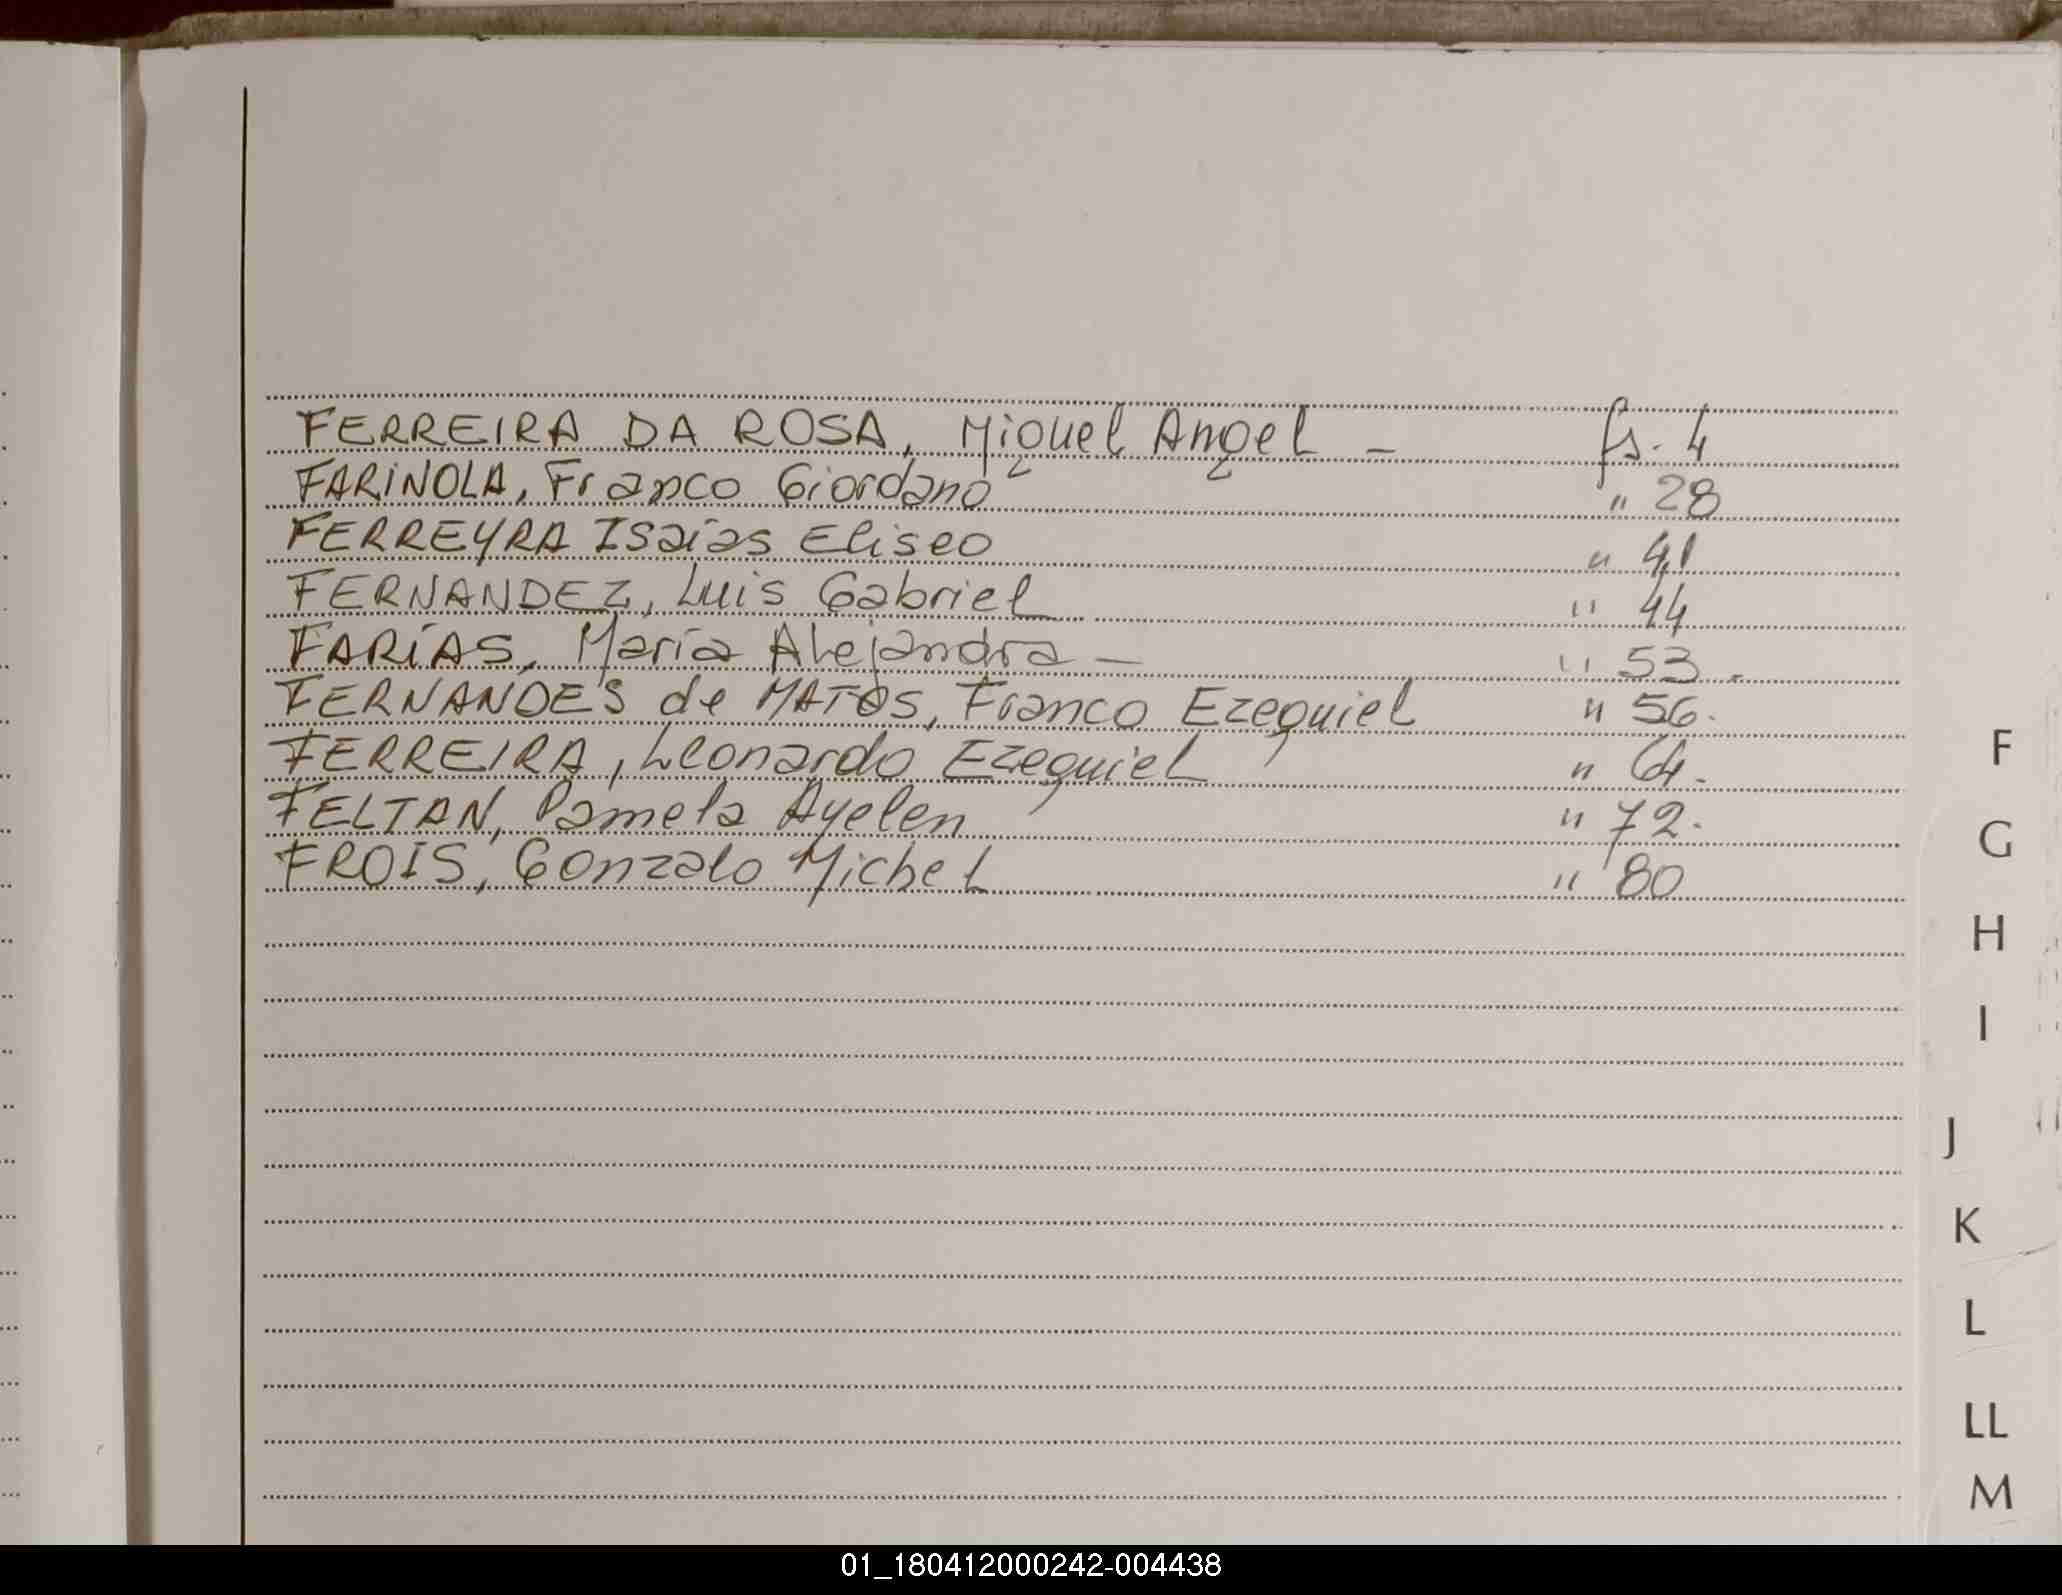 FERREIRA DA ROSA, Miguel Angel — fs. 4
FARINOLA, Franco Giordano " 28
FERREYRA Isaías Eliseo " 41
FERNANDEZ, Luis Gabriel " 44
FARÍAS, María Alejandra — " 53.
FERNANDES de MATOS, Franco Ezequiel " 56.
FERREIRA, Leonardo Ezequiel " 64.
FELTAN, Pamela Ayelen " 72.
FROIS, Gonzalo Michel " 80
F
G
H
I
J
K
L
LL
M
01_180412000242-004438